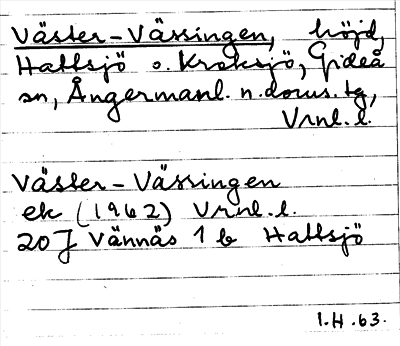 Väster-Vässingen, höjd,
Hattsjö o. Kroksjö, Gideå
sn, Ångermanl. n. doms. tg,
Vrnl. l.
Väster-Vässingen
ek (1962) Vrnl. l.
20J Vännäs 1 b Hattsjö
I.H.63.